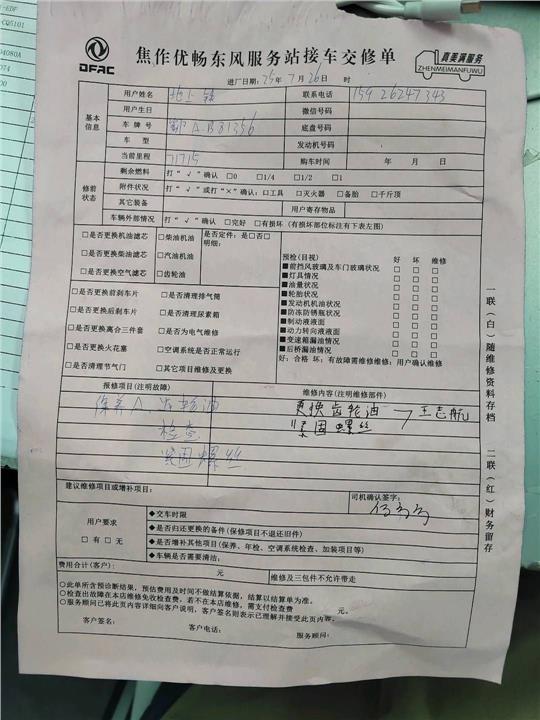 -EDF
CQ5101
04080A
074
00
DFAC
焦作优畅东风服务站接车交修单
真美满服务
ZHENMEIMANFUWU
进厂日期: 25年 7月 26日 时
基本信息
用户姓名
联系电话 15926247343
用户生日 微信号码
车牌号 鄂A B81356 底盘号码
车型 发动机号码
当前里程 71715 购车时间 年 月 日
修前状态
剩余燃料 打“√”确认 □0 □1/4 □1/2 □1
附件状况 打“√”或打“×”确认: □工具 □灭火器 □备胎 □千斤顶
其它装备 用户寄存物品
车辆外部情况 打“√”确认 □完好 □有损坏 (有损坏部位标注有下表左图)
□是否更换机油滤芯 □柴油机油 是否定件: 是□否□
明细:
□是否更换柴油滤芯 □汽油机油
□是否更换空气滤芯 □齿轮油
□是否更换前刹车片 □是否清理排气筒
□是否更换后刹车片 □是否清理尿素箱
□是否更换离合三件套 □是否为电气维修
□是否更换火花塞 □空调系统是否正常运行
□是否清理节气门 □其它项目维修及更换
预检(目视) 好 坏 维修
■前挡风玻璃及车门玻璃状况 □ □ □
■灯具情况 □ □ □
■油量状况 □ □ □
■轮胎状况 □ □ □
■发动机机油状况 □ □ □
■防冻防锈瓶状况 □ □ □
■制动液液面 □ □ □
■动力转向液液面 □ □ □
■变速箱漏油情况 □ □ □
■后桥漏油情况 □ □ □
好: 合格 坏: 有故障需维修维修: 用户确认维修
报修项目(注明故障) 维修内容(注明维修部件)
保养A. 齿轮油
检查
紧固螺丝
更换齿轮油
紧固螺丝
王志航
建议维修项目或增补项目:
司机确认签字:
用户要求
□有 □无
◆交车时限
◆是否归还更换的备件(保修项目不退还旧件)
◆是否增补其他项目(保养、年检、空调系统检查、加装项目等)
◆车辆是否需要清洁:
费用合计(客户): 元 维修及三包件不允许带走
○此单所含预诊断结果，预估费用及时间不做结算依据，结算以结算单为准。
○检查出故障在本店维修免收检查费，若不在本店维修，需支付检查费 元。
○服务顾问已将此页内容详细向客户说明，客户签名则表示已理解并接受此页内容。
客户签名: 客户电话: 服务顾问:
一联(白)随维修资料存档
二联(红)财务留存